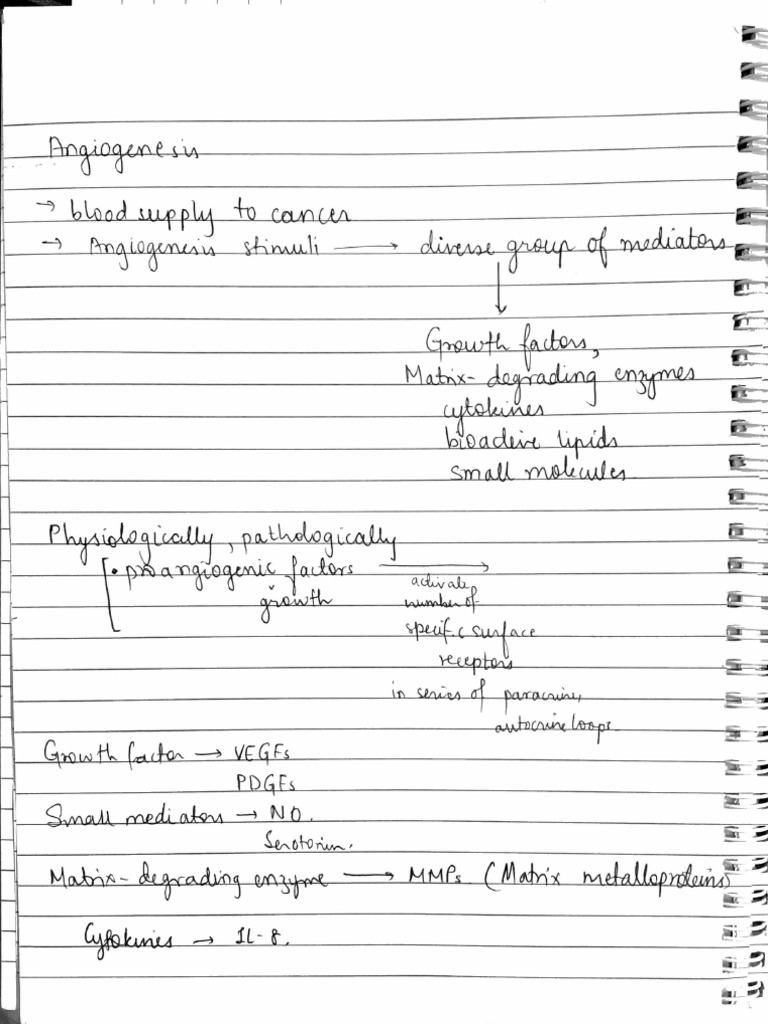 Angiogenesis
→ blood supply to cancer
→ Angiogenesis stimuli → diverse group of mediators
↓
Growth factors,
Matrix-degrading enzymes
cytokines
bioactive lipids
small molecules
Physiologically, pathologically
[• proangiogenic factors →
growth
activate
number of
specific surface
receptors
in series of paracrine,
autocrine loops
Growth factor → VEGFs
PDGFs
Small mediators → NO.
Serotonin.
Matrix-degrading enzyme → MMPs (Matrix metalloproteins)
Cytokines → IL-8.